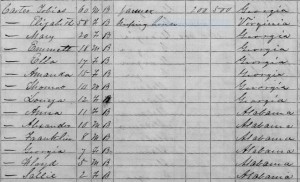 Carter Tobias 60 M B Farmer 200 500 Georgia
— Elizabeth 58 F B Keeping house Virginia
— Mary 20 F B Georgia
— Emmett 18 M B Georgia
— Ella 17 F B Georgia
— Amanda 15 F B Georgia
— Thomas 14 M B Georgia
— Louiza 12 F Georgia
— Anna 11 F B Alabama
— Alexander 10 M B Alabama
— Franklin 8 M B Alabama
— Georgia 7 F B Alabama
— Floyd 5 M B Alabama
— Sallie 2 F B Alabama